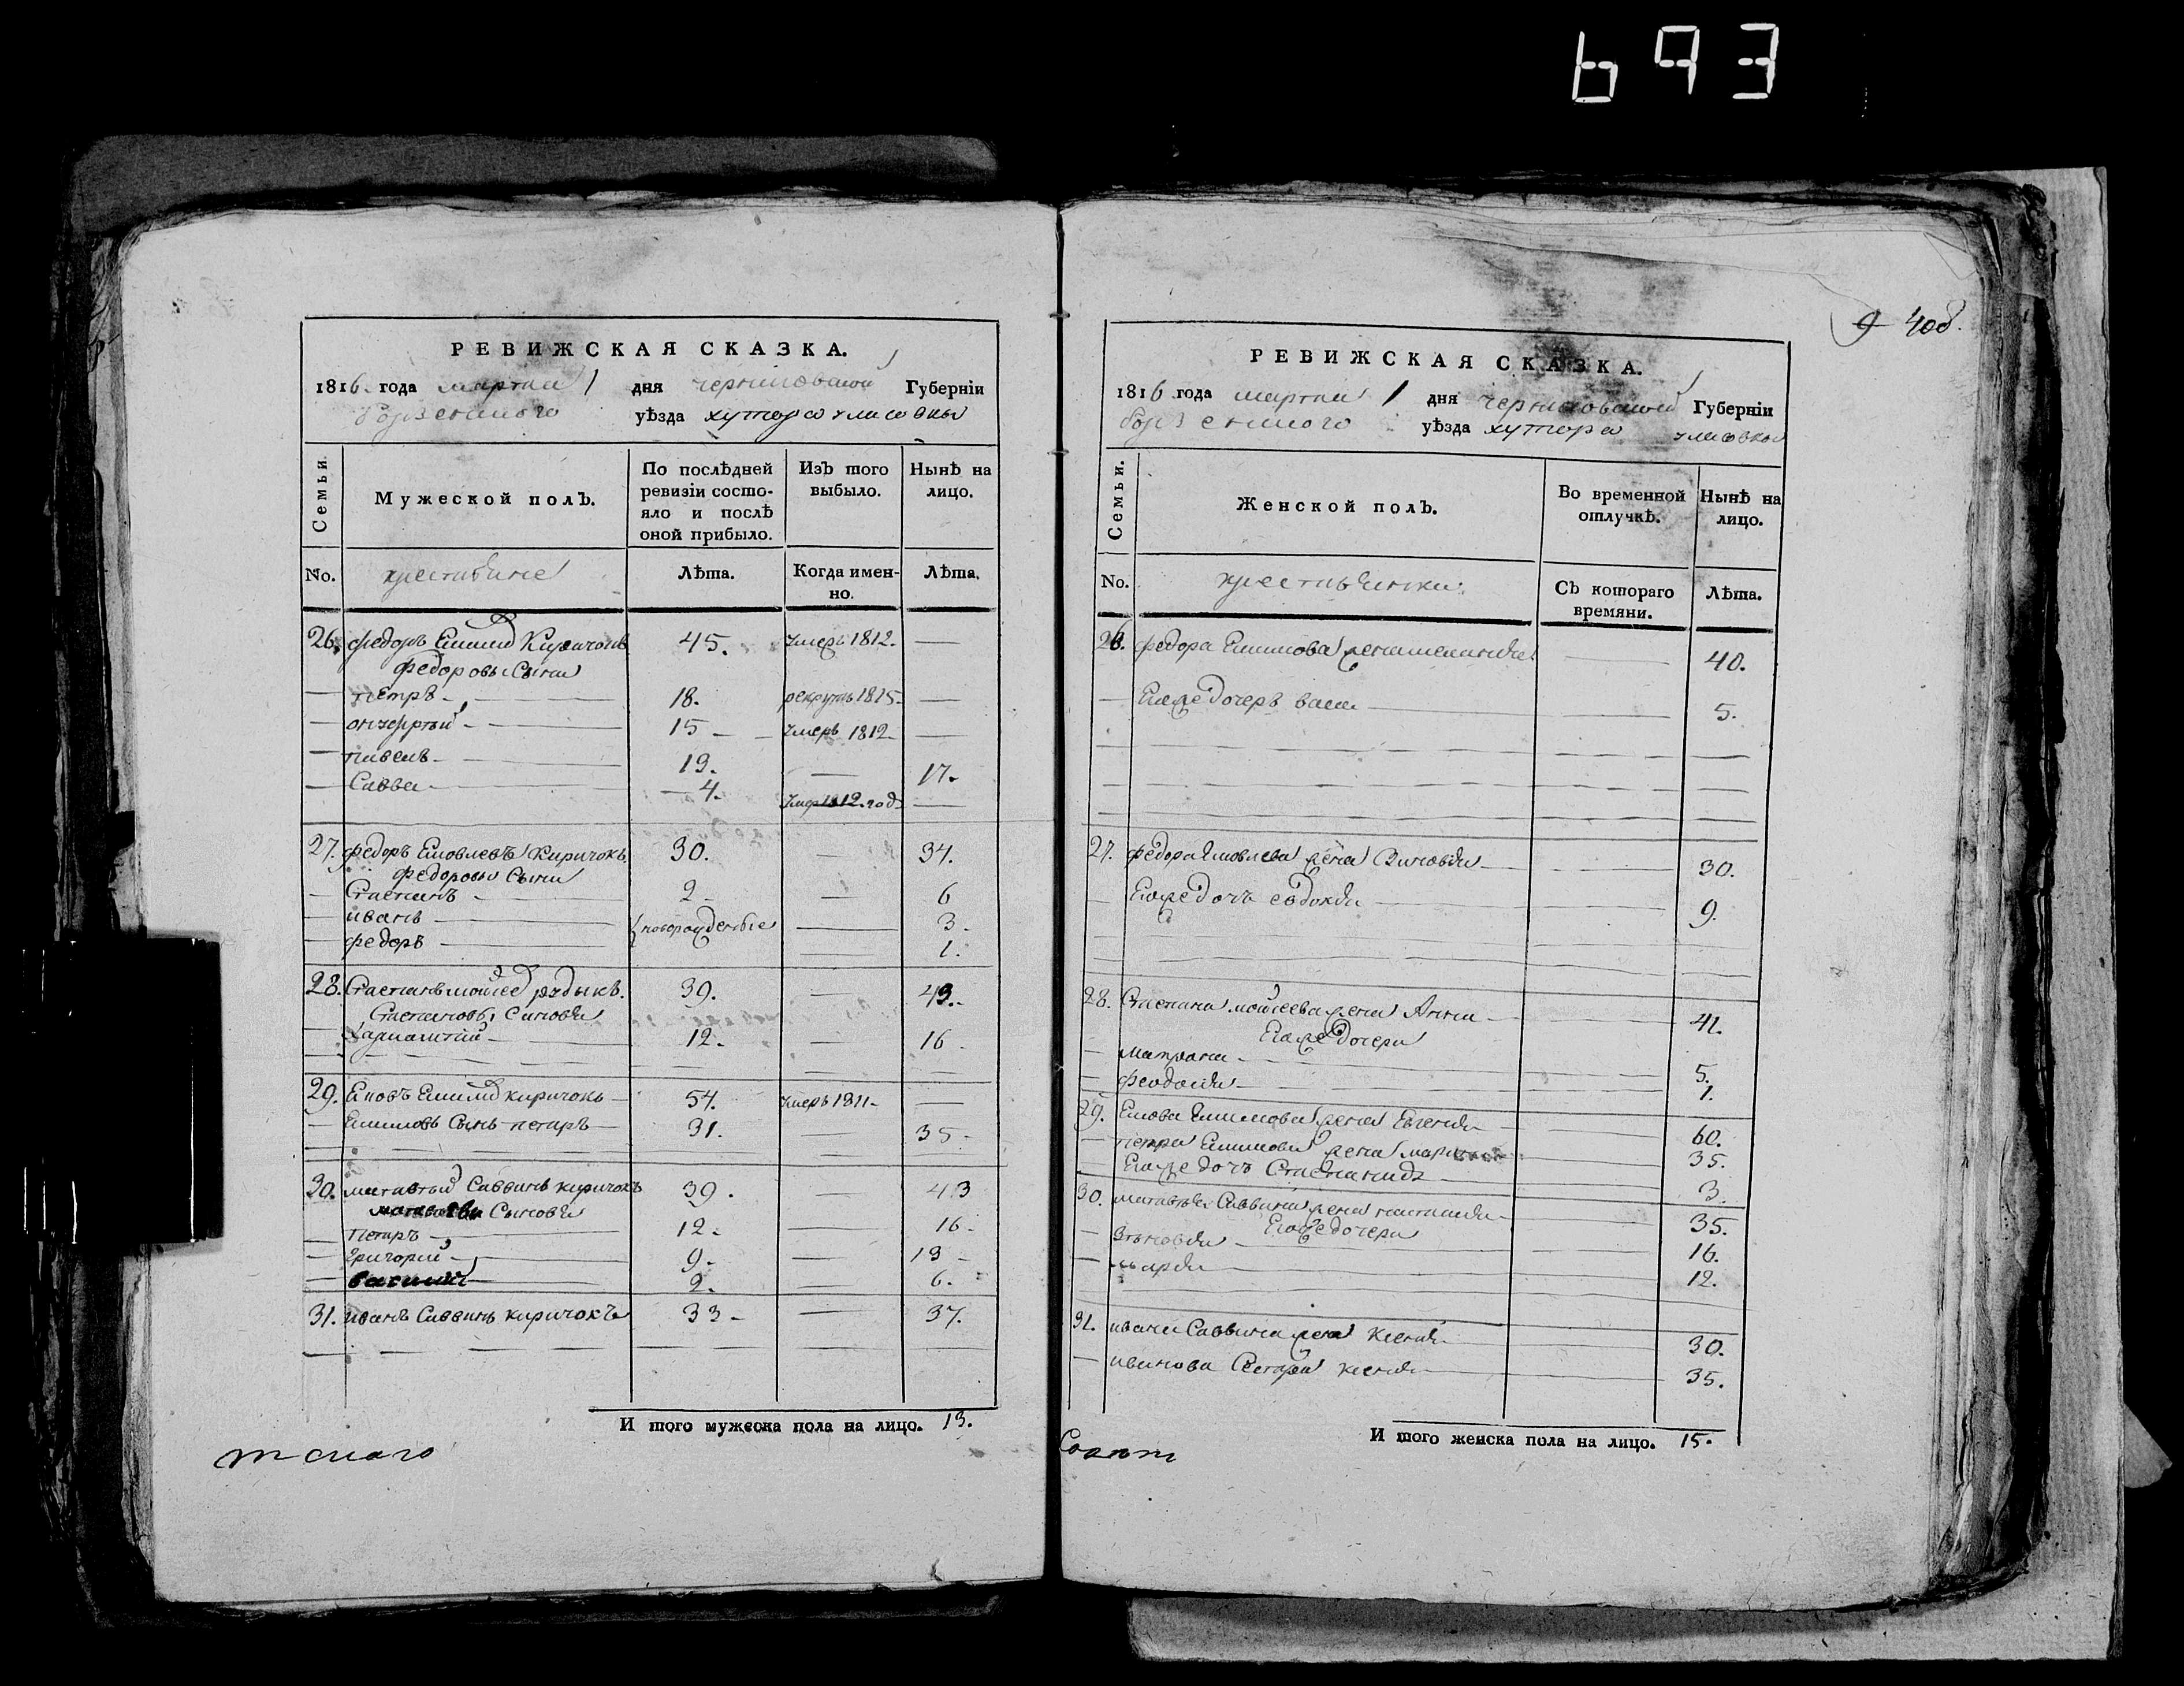 693
9 40б.
РЕВИЖСКАЯ СКАЗКА.
1816 года марта 1 дня черниговской Губернїи
борзенского уѣзда хутора
Семьи.
Мужеской полЪ.
По послѣдней ревизїи состояло и послѣ оной прибыло.
ИзЪ того выбыло.
Нынѣ на лицо.
No.
крестьяне
Лѣта.
Когда именно.
Лѣта.
26. федоръ Киричокъ 45. умеръ 1812. —
федоровы Сыни
— петръ — 18. рекрутъ 1815 —
— 15 — умеръ 1812 —
— павелъ — 13. — 17.
— Савва — 4. умер 1812 год —
27. федоръ Яковлевъ Киричокъ 30. — 34.
федоровы Сыни
— Степанъ — 2 — 6
— иванъ — новорожденые — 3.
— федоръ — — 1.
28. Степанъ моисеев рудыкъ. 39. — 43.
Степановы Синовья
— 12. — 16
29. Яковъ киричокъ — 54. умеръ 1811 —
— Сынъ петръ — 31. — 35
30. матвей Саввинъ киричокъ 39. — 43
матвеевы Сыновья
— петръ — 12. — 16
— григорий — 9. — 13
— василий — 2. — 6.
31. иванъ Саввинъ киричокъ 33 — 37.
И того мужеска пола на лицо. 13.
РЕВИЖСКАЯ СКАЗКА.
1816 года марта 1 дня черниговской Губернїи
борзенского уѣзда хутора
Семьи.
Женской полЪ.
Во временной отлучкѣ.
Нынѣ на лицо.
No.
крестьянки
СЪ котораго времяни.
Лѣта.
26. федора жена — 40.
— Его же дочеръ — 5.
27. федора Яковлева жена Зиновия — 30.
— Его же дочъ евдокия — 9.
28. Степана моисеева жена Анна — 41.
Его же дочери
— матрона — 5.
— феодосия — 1.
29. Якова жена Евгения — 60.
— петра жена — 35.
— Его же дочъ Степанида — 3.
30. матвея Саввина жена — 35.
Его же дочери
— Зиновия — 16.
— марья — 12.
31. ивана Саввина жена Ксения — 30.
— иванова Сестра ксения — 35.
И того женска пола на лицо. 15.